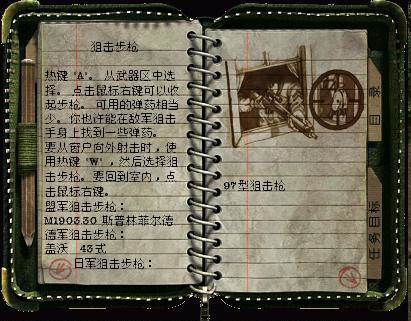 狙击步枪
热键 'A'。 从武器区中选
择。 点击鼠标右键可以收
起步枪。 可用的弹药相当
少。你也许能在敌军狙击
手身上找到一些弹药。
要从窗户向外射击时,使
用热键 'W',然后选择狙
击步枪。要回到室内,点
击鼠标右键。
盟军狙击步枪:
M1903.30 斯普林菲尔德
德军狙击步枪:
盖沃 43式
日军狙击步枪:
97型狙击枪
目录
任务目标